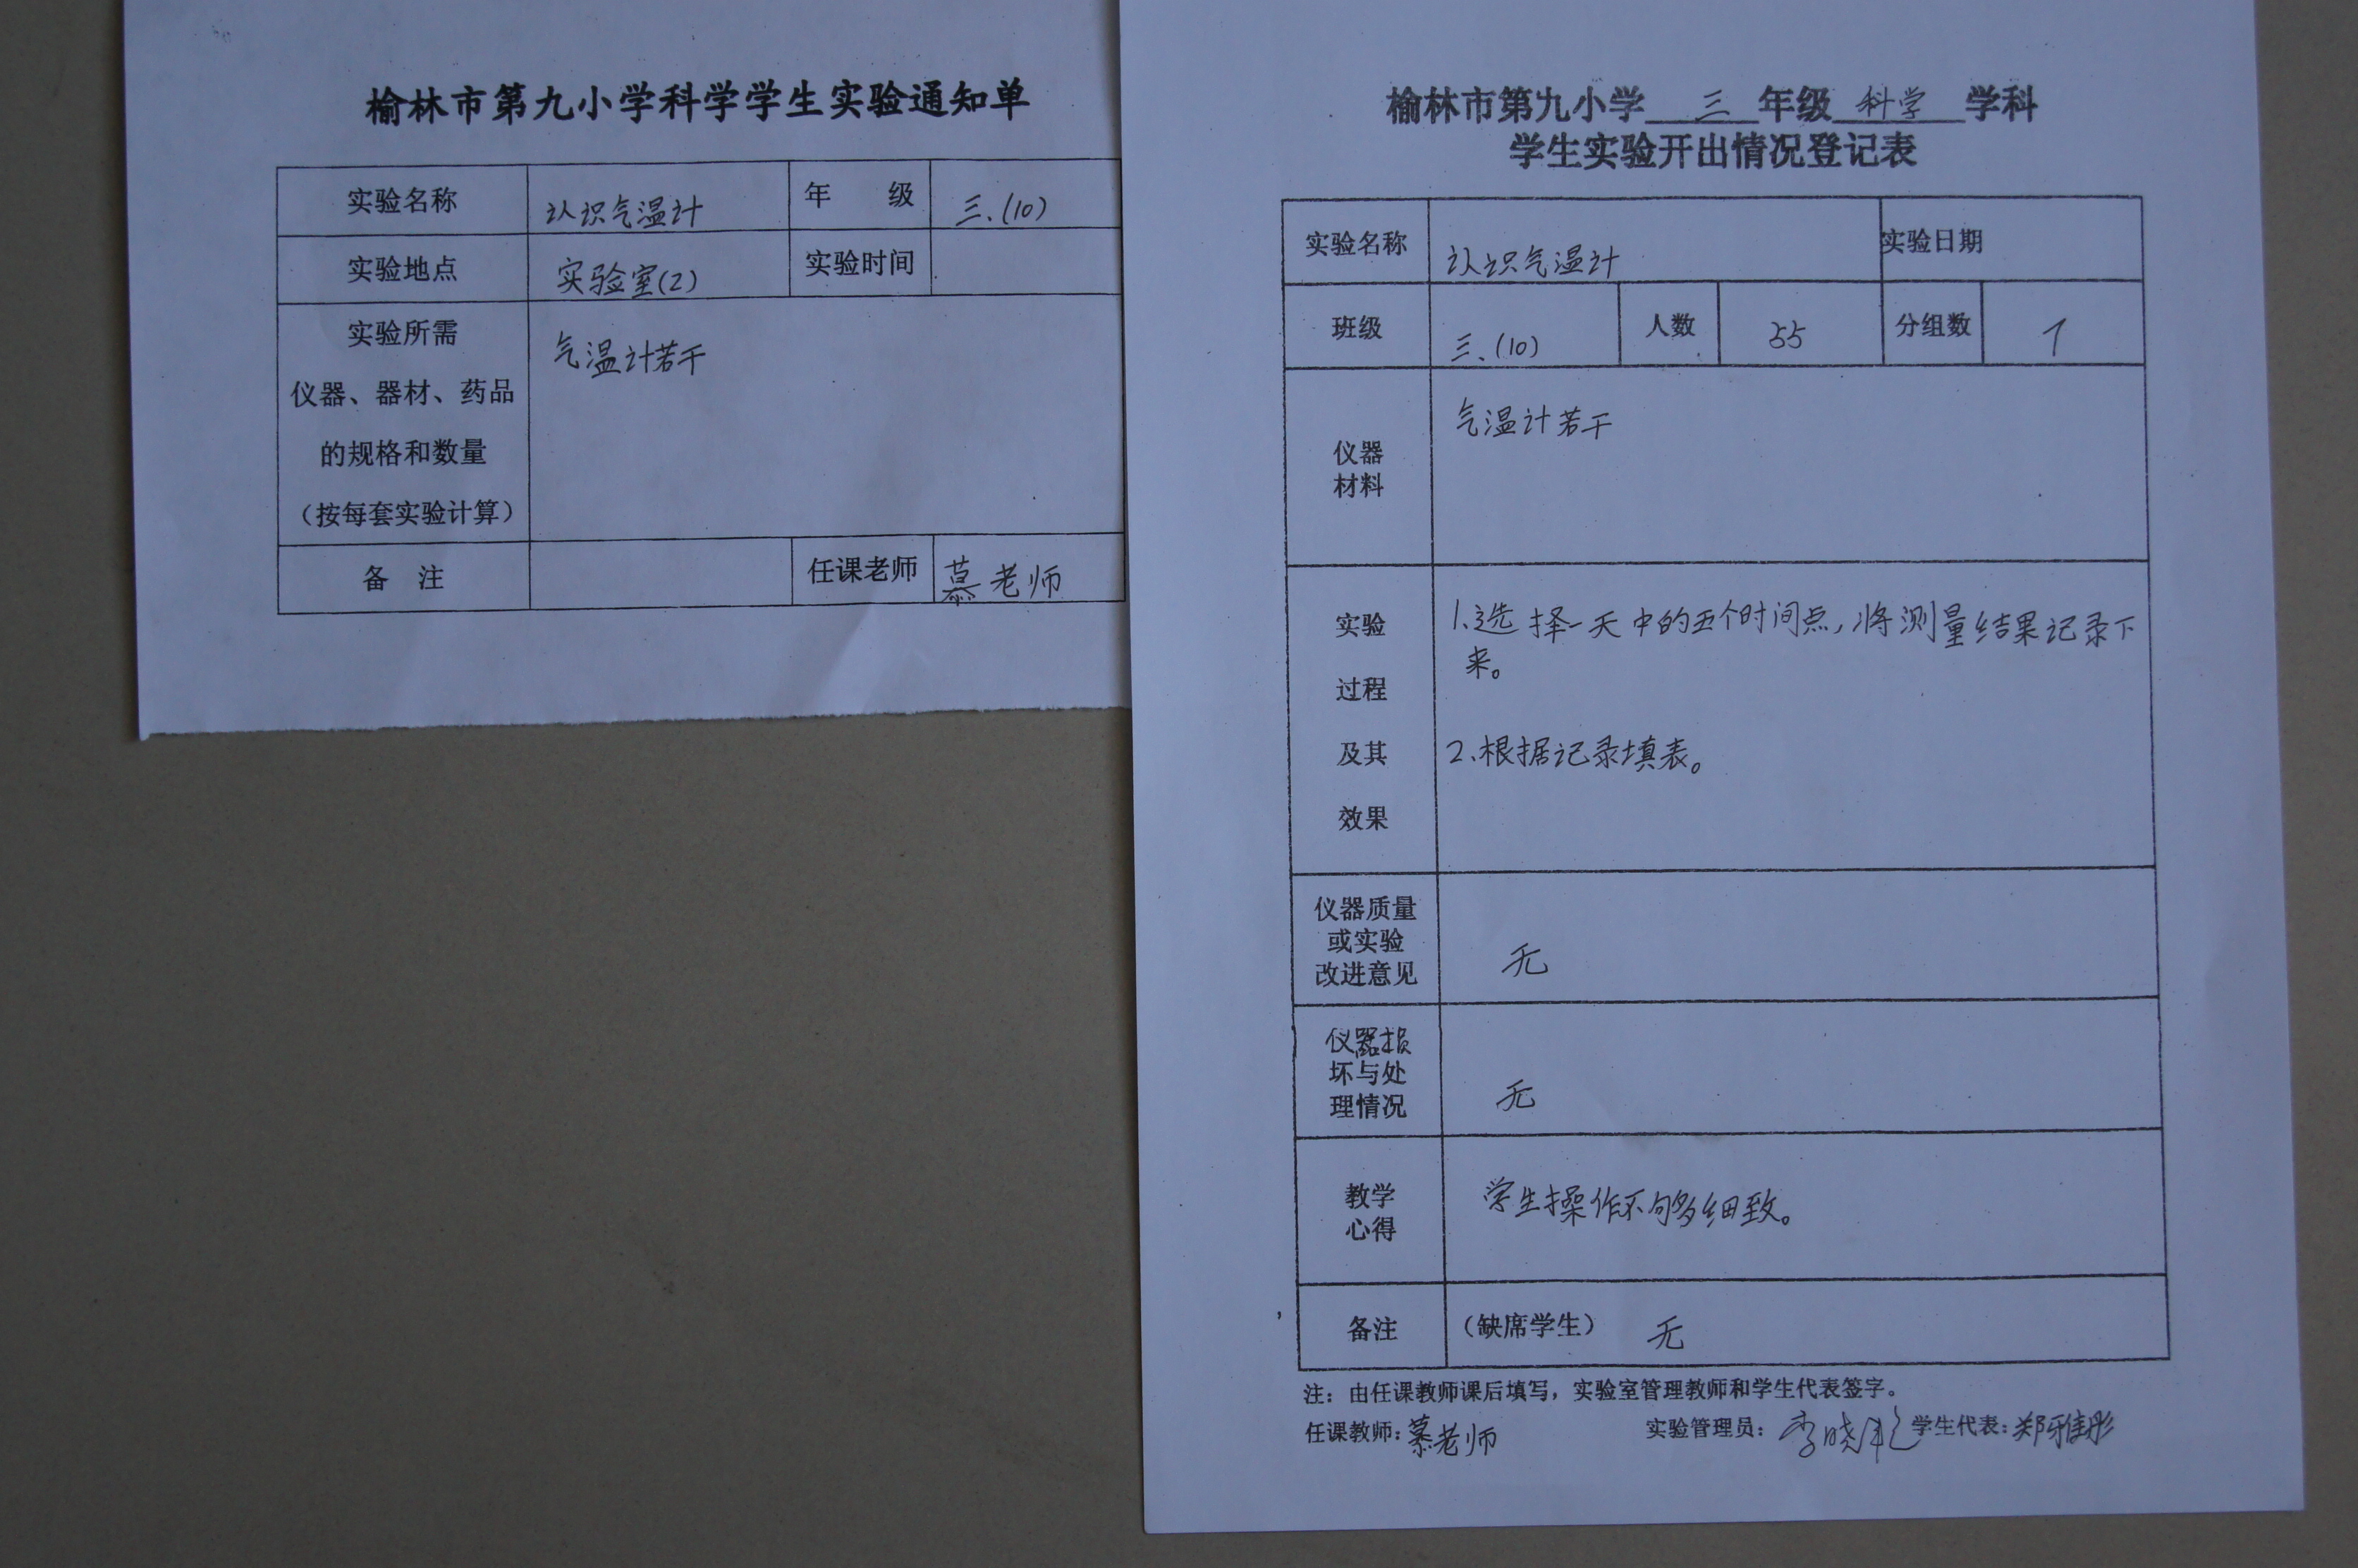 榆林市第九小学科学学生实验通知单
实验名称 认识气温计 年 级 三.(10)
实验地点 实验室(2) 实验时间
实验所需
仪器、器材、药品
的规格和数量
(按每套实验计算)
气温计若干
备 注 任课老师 慕老师
榆林市第九小学 三 年级 科学 学科
学生实验开出情况登记表
实验名称 认识气温计 实验日期
班级 三.(10) 人数 55 分组数
仪器
材料
气温计若干
实验
过程
及其
效果
1.选择一天中的五个时间点,将测量结果记录下
来。
2.根据记录填表。
仪器质量
或实验
改进意见
无
仪器损
坏与处
理情况
无
教学
心得
学生操作不够细致。
备注 (缺席学生) 无
注:由任课教师课后填写,实验室管理教师和学生代表签字。
任课教师:慕老师 实验管理员: 李晓 学生代表:郑雅彤